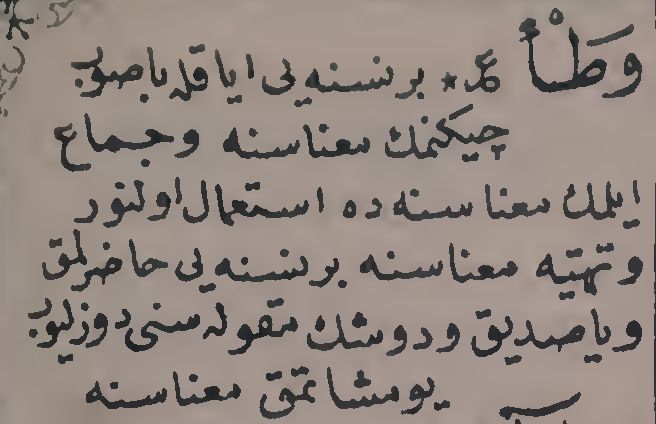 وَطْأْ عم * بر نسنه یی ایاقله باصوب
چیکنمك معناسنه وجماع
ایلمك معناسنه ده استعمال اولنور
وتهیئه معناسنه بر نسنه یی حاضرلمق
ویاصدیق ودوشك مقوله سنی دوزلیوب
یومشاتمق معناسنه